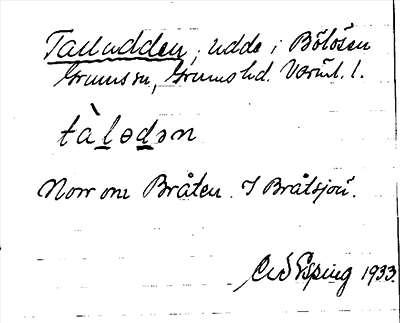 Talludden, udde i Bölösen
Grums sn, Grums hd. Värml. l.
tàlədən
Norr om Bråten. I Bråtsjön.
Esping 1933.